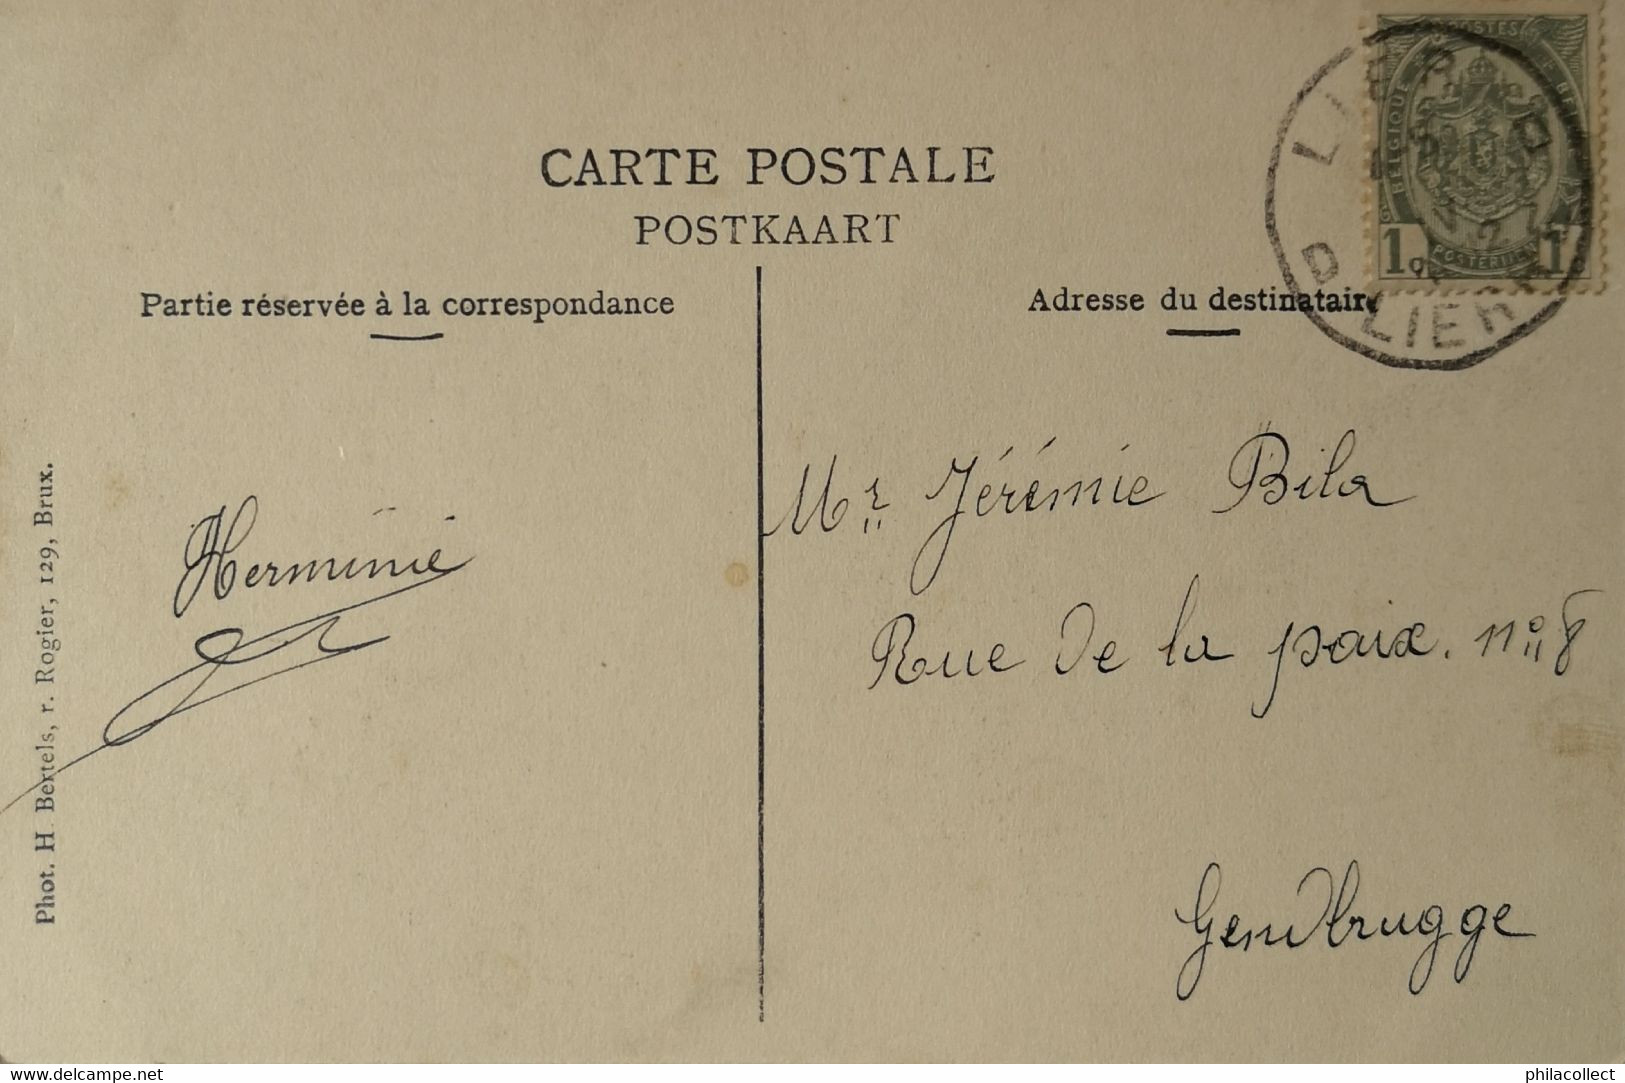 CARTE POSTALE
POSTKAART
Partie réservée à la correspondance
Adresse du destinataire
POSTES
BELGIQUE
POSTERIJEN
1c 1c
LIER D
D LIER
Phot. H Bertels, r. Rogier, 129, Brux.
Herminie
Mr. Jérémie Bila
Rue de la paix. no 8
Gendbrugge
delcampe.net
philacollect